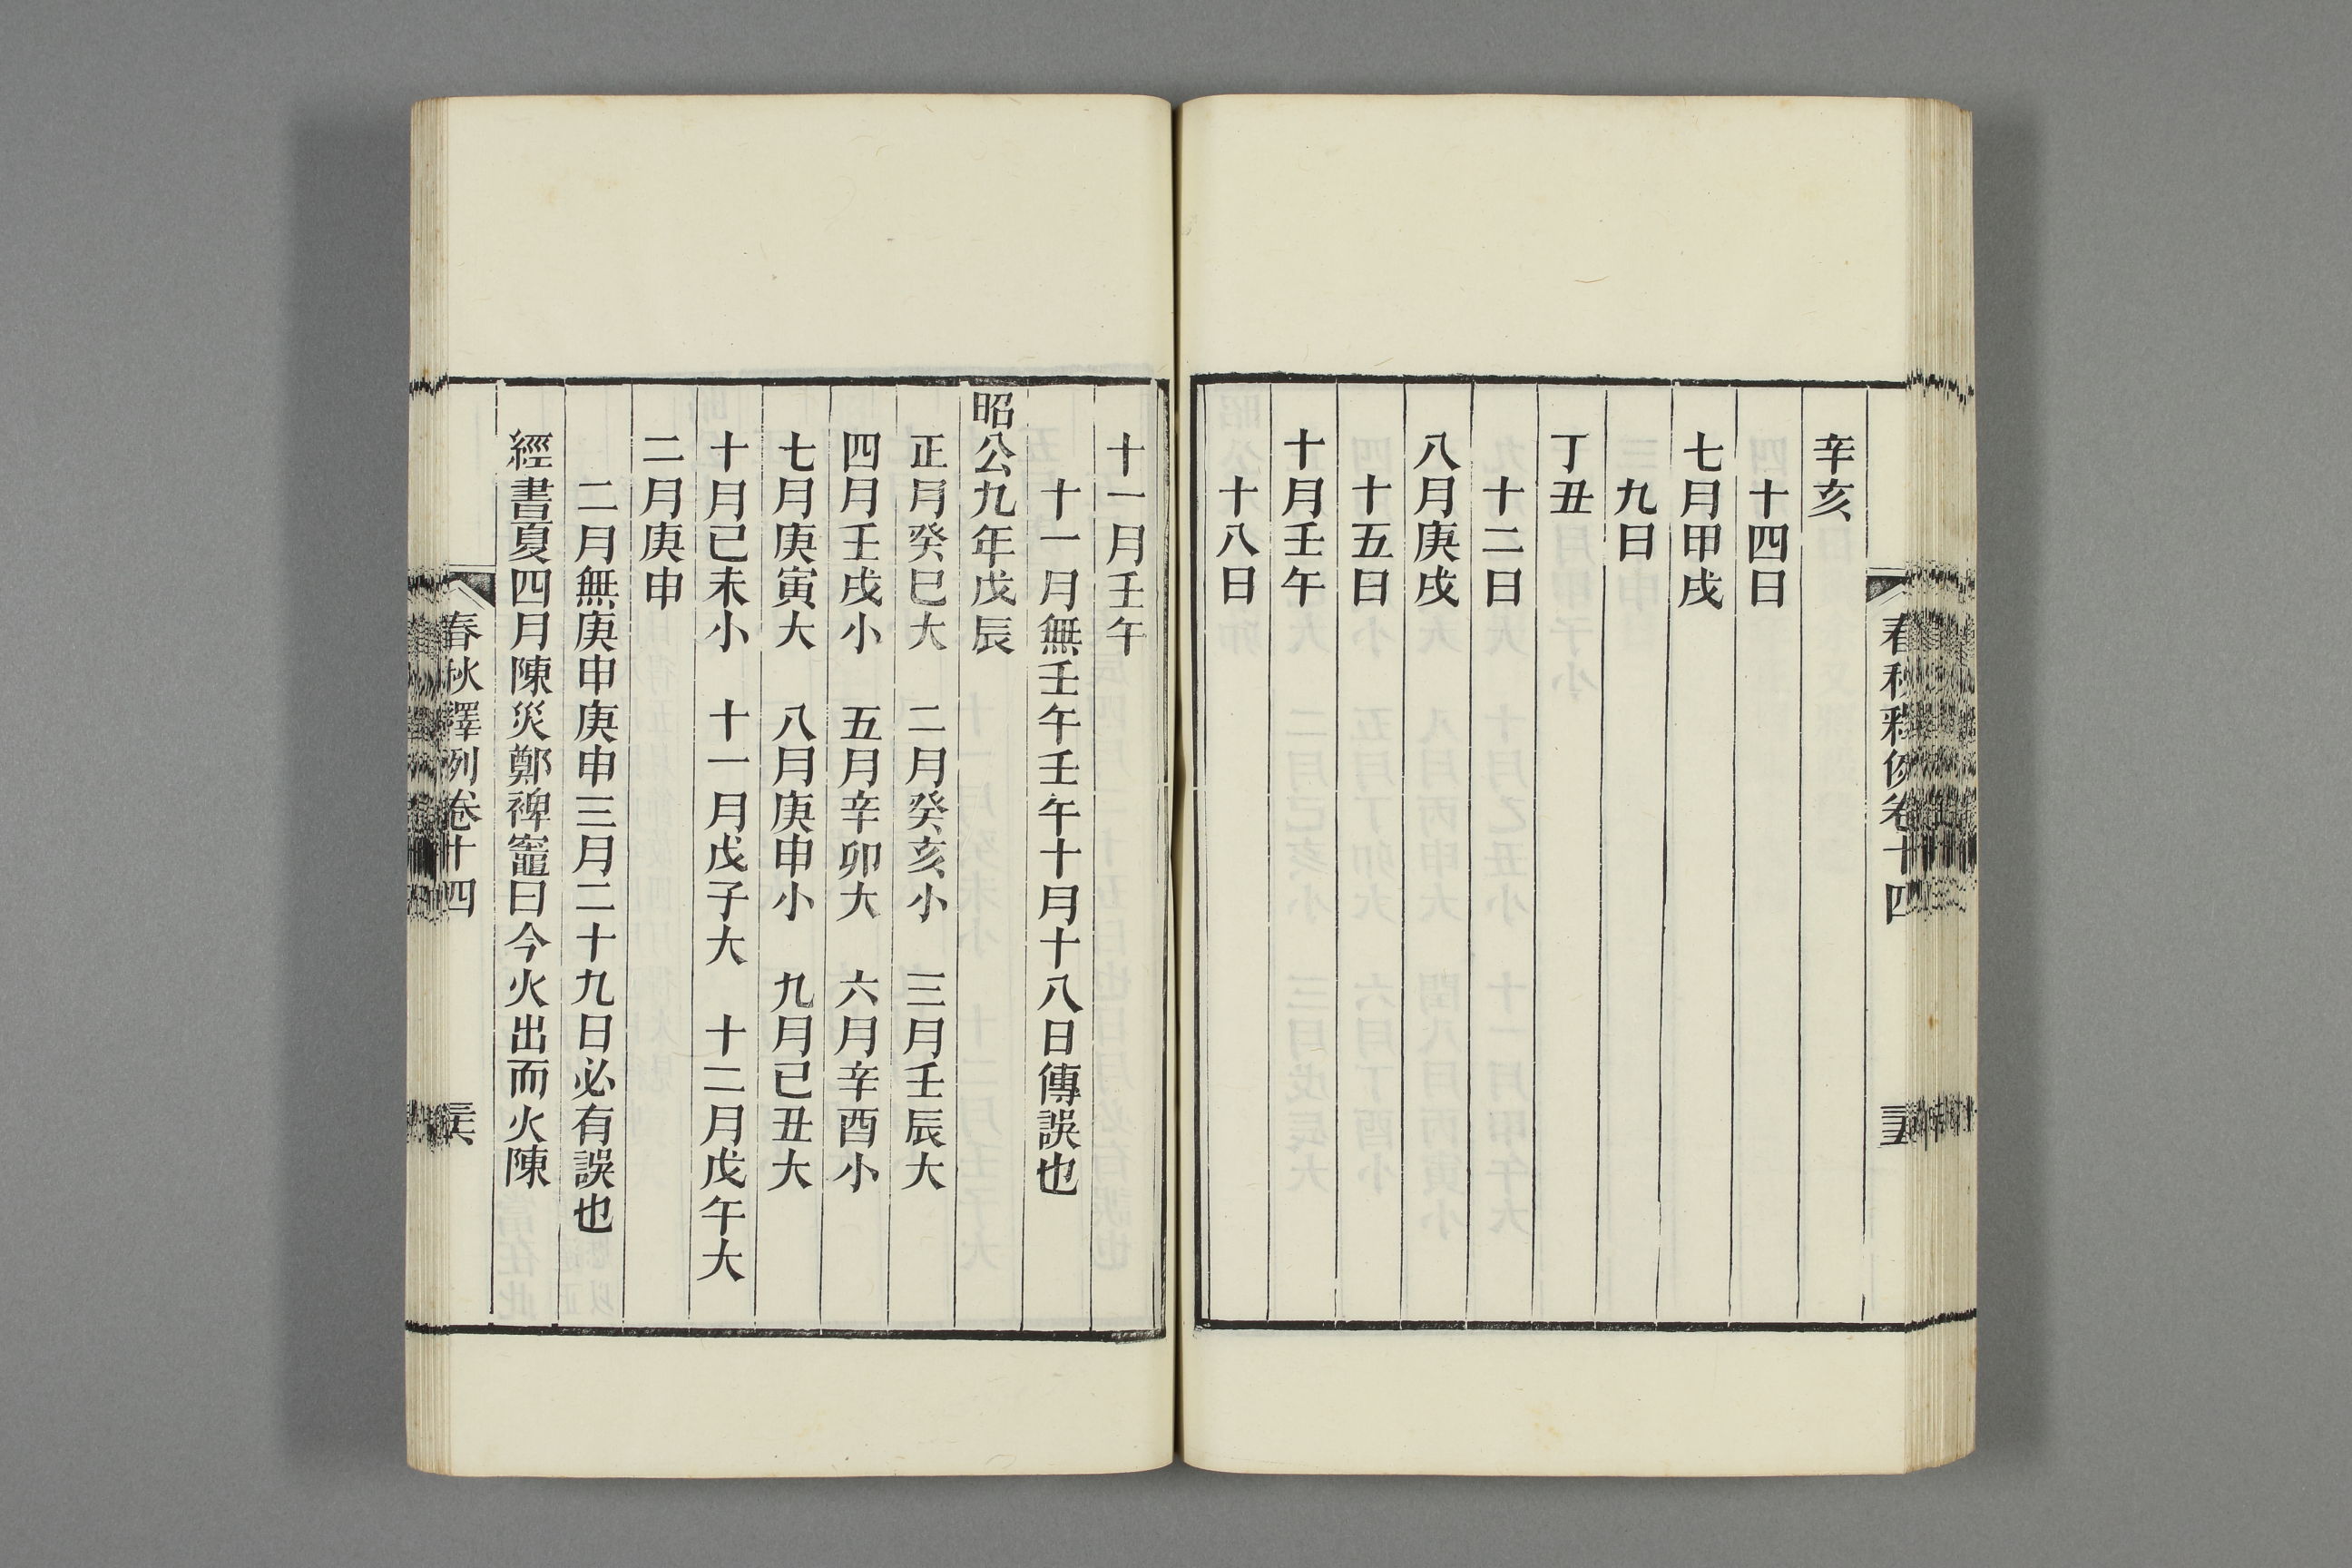 春秋釋例卷十四
辛亥
十四日
七月甲戌
九日
丁丑
十二日
八月庚戌
十五日
十月壬午
十八日
十一月壬午
十一月無壬午壬午十月十八日傳誤也
昭公九年戊辰
正月癸巳大　二月癸亥小　三月壬辰大
四月壬戌小　五月辛卯大　六月辛酉小
七月庚寅大　八月庚申小　九月己丑大
十月己未小　十一月戊子大　十二月戊午大
二月庚申
二月無庚申庚申三月二十九日必有誤也
經書夏四月陳災鄭裨竈曰今火出而火陳
春秋釋例卷十四